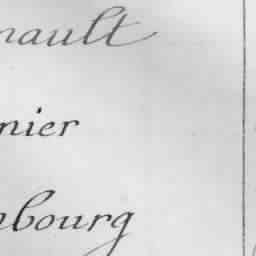 nault
nier
bourg